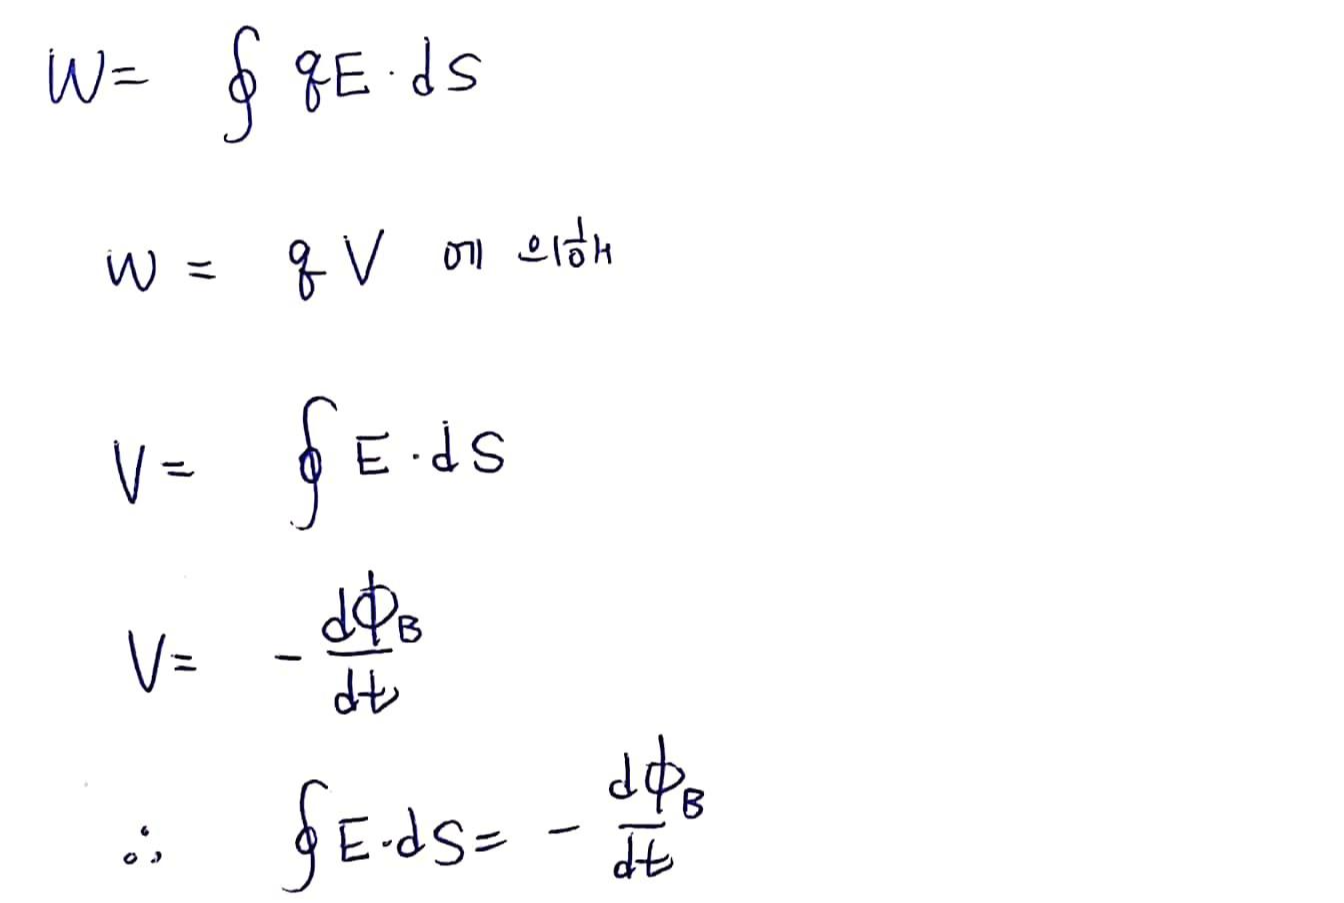 W= ∮ qE·dS
W = qV 에 의해
V= ∮ E·dS
V= - dΦB/dt
∴ ∮E·dS= - dΦB/dt